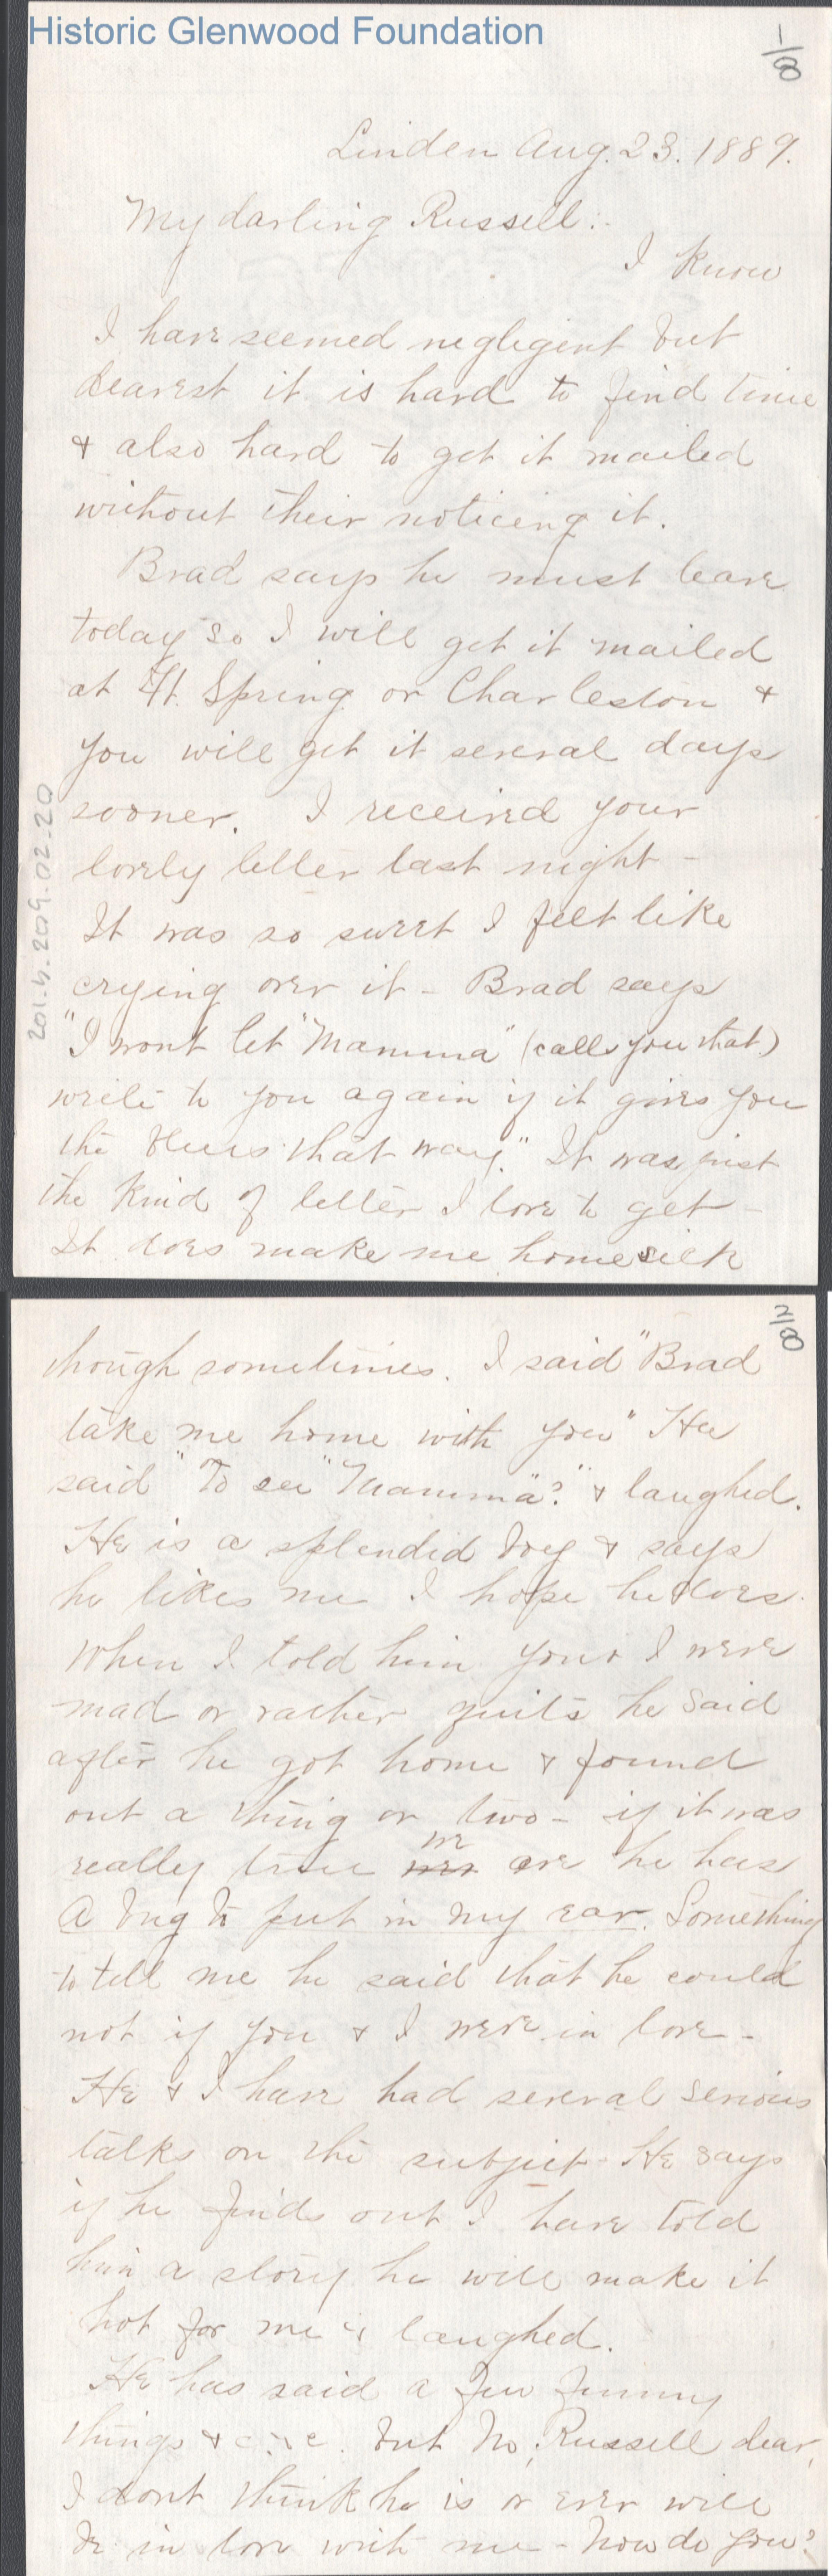 Historic Glenwood Foundation
1/8
Linden Aug. 23. 1889.
My darling Russell:-
I know
I have seemed negligent but
dearest it is hard to find time
& also hard to get it mailed
without their noticing it.
Brad says he must leave
today so I will get it mailed
at Ft. Spring or Charleston &
you will get it several days
sooner. I received your
lovely letter last night -
It was so sweet I felt like
crying over it - Brad says
"I wont let "Mamma" (calls you that)
write to you again if it gives you
the blues that way." It was just
the kind of letter I love to get -
It does make me homesick
201.4.209.02.20
2/8
though sometimes. I said "Brad
take me home with you" He
said "To see "Mamma"?" & laughed.
He is a splendid boy & says
he likes me I hope he does.
When I told him you & I were
mad or rather quits he said
after he got home & found
out a thing or two - if it was
really true we are he has
a bug to put in my ear. Something
to tell me he said that he could
not if you & I were in love -
He & I have had several serious
talks on the subject. He says
if he finds out I have told
him a story he will make it
hot for me & laughed.
He has said a few funny
things & c. &c. but No, Russell dear,
I dont think he is or ever will
be in love with me - Now do you?